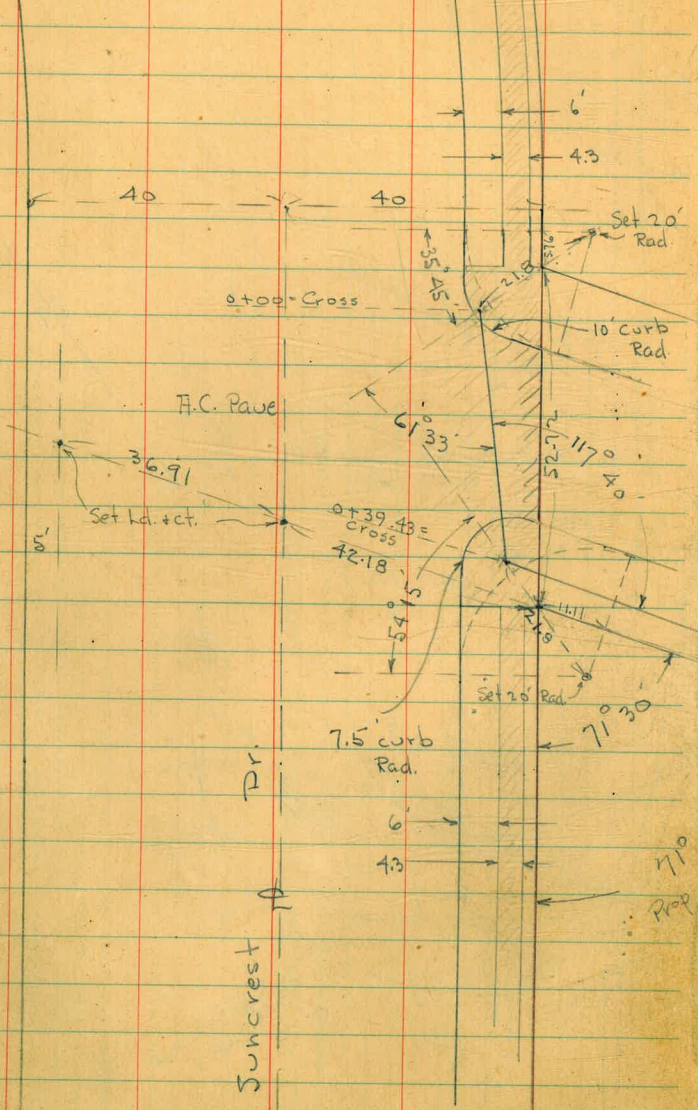 6'
4.3
40
40
Set 20'
Rad.
5.76
21.8
35° 45'
0+00 = Cross
10' curb
Rad.
A.C. Pave
61° 33'
52.72
117° 40'
36.91
Set Ld. & ct.
0+39.43 =
Cross
42.18
5'
54° 15'
11.11
21.8
Set 20' Rad.
71° 30'
7.5' curb
Rad.
6'
4.3
71°
Prop
Suncrest Dr.